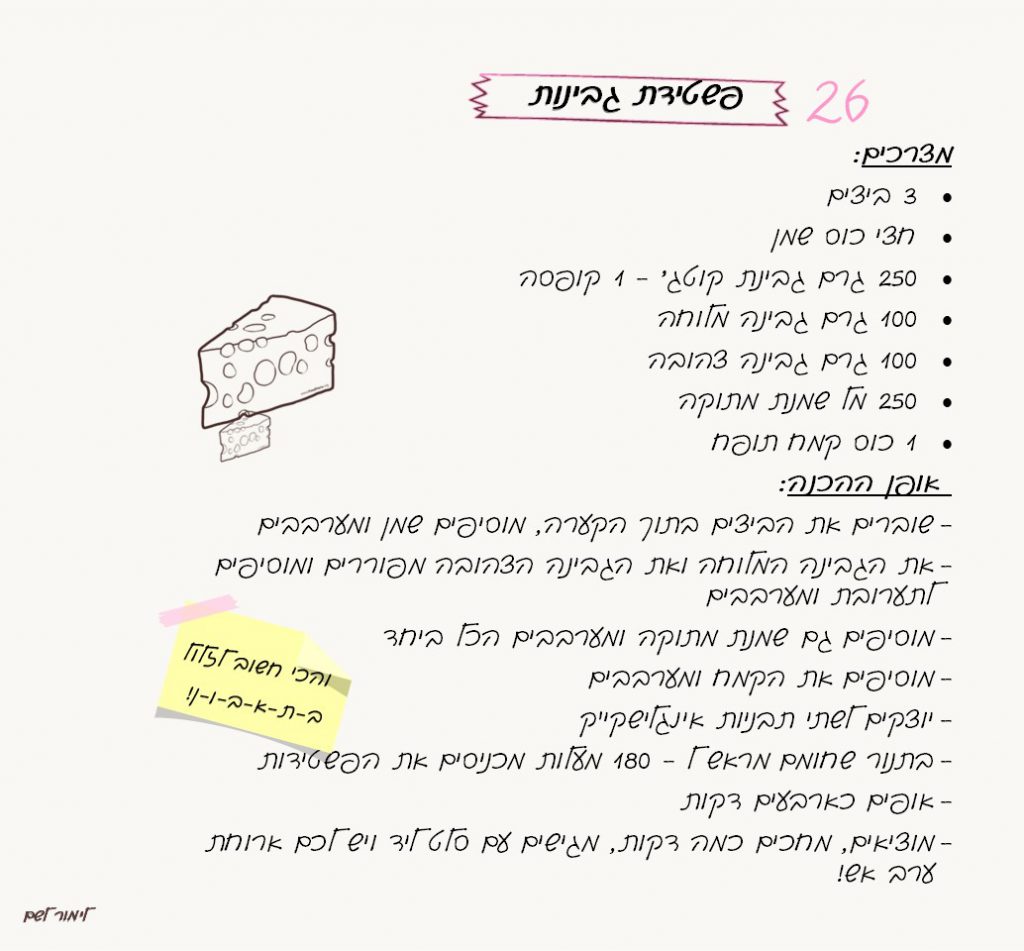 26 פשטידת גבינות
מצרכים:
• 3 ביצים
• חצי כוס שמן
• 250 גרם גבינת קוטג' - 1 קופסה
• 100 גרם גבינה מלוחה
• 100 גרם גבינה צהובה
• 250 מל שמנת מתוקה
• 1 כוס קמח תופח
אופן ההכנה:
- שוברים את הביצים בתוך הקערה, מוסיפים שמן ומערבבים
- את הגבינה המלוחה ואת הגבינה הצהובה מפוררים ומוסיפים
לתערובת ומערבבים
- מוסיפים גם שמנת מתוקה ומערבבים הכל ביחד
- מוסיפים את הקמח ומערבבים
- יוצקים לשתי תבניות אינגלישקייק
- בתנור שחומם מראש ל - 180 מעלות מכניסים את הפשטידות
- אופים כארבעים דקות
- מוציאים, מחכים כמה דקות, מגישים עם סלט ליד ויש לכם ארוחת
ערב אש!
והכי חשוב לזלול
ב-ת-א-ב-ו-ן!
לימור לשם